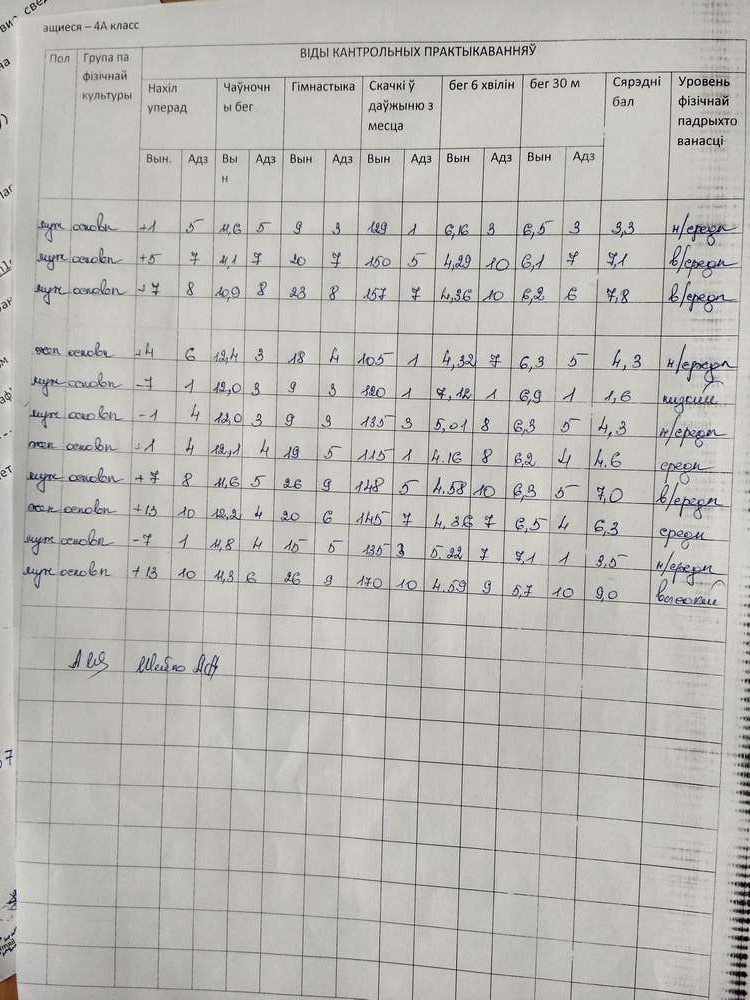 ащиеся – 4А класс
Пол Група па фізічнай культуры ВІДЫ КАНТРОЛЬНЫХ ПРАКТЫКАВАННЯЎ
Нахіл уперад Чаўночны бег Гімнастыка Скачкі ў даўжыню з месца бег 6 хвілін бег 30 м Сярэдні бал Уровень фізічнай падрыхтованасці
Вын. Адз Вын Адз Вын Адз Вын Адз Вын Адз Вын Адз
муж основн +1 5 11,6 5 9 3 129 1 6,16 3 6,5 3 3,3 н/средн
муж основн +5 7 11,1 7 20 7 150 5 4,29 10 6,1 7 7,1 в/средн
муж основн +7 8 10,9 8 23 8 157 7 4,36 10 6,2 6 7,8 в/средн
жен основн +4 6 12,4 3 18 4 105 1 4,32 7 6,3 5 4,3 н/средн
муж основн -7 1 12,0 3 9 3 120 1 7,12 1 6,9 1 1,6 низкий
муж основн -1 4 12,0 3 9 3 135 3 5,01 8 6,3 5 4,3 н/средн
жен основн +1 4 12,1 4 19 5 115 1 4.16 8 6,2 4 4,6 средн
муж основн +7 8 11,6 5 26 9 148 5 4.58 10 6,3 5 7,0 в/средн
жен основн +13 10 12,2 4 20 6 145 7 4,36 7 6,5 4 6,3 средн
муж основн -7 1 11,8 4 15 5 135 3 5.22 7 7,1 1 3,5 н/средн
муж основн +13 10 11,3 6 26 9 170 10 4.59 9 5,7 10 9,0 высокий